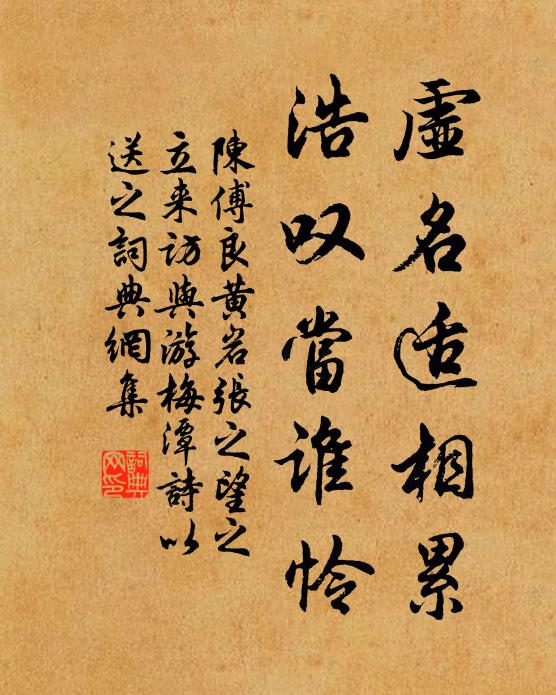 虛名适相累
浩叹當誰怜
陳傅良黄岩張之望之
立来访與游梅潭詩以
送之詞典網集
詞典網印